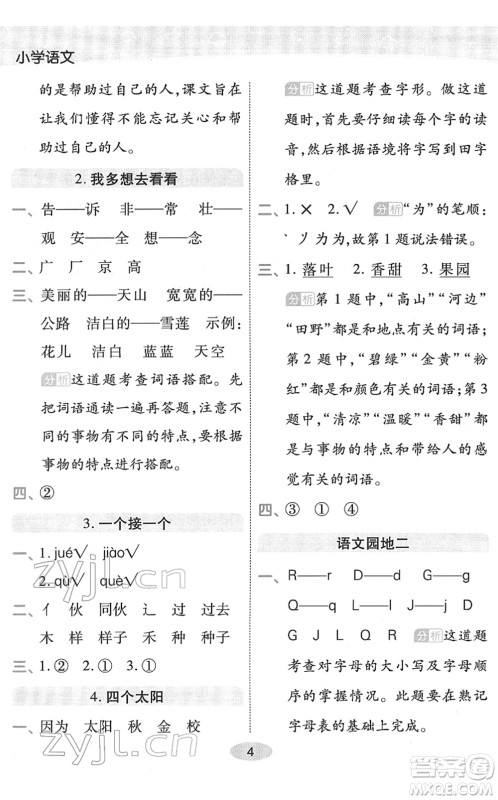 小学语文
的是帮助过自己的人,课文旨在
让我们懂得不能忘记关心和帮
助过自己的人。
2. 我多想去看看
一、告——诉 非——常 壮——
观 安——全 想——念
二、广 厂 京 高
三、美丽的——天山 宽宽的——
公路 洁白的——雪莲 示例:
花儿 洁白 蓝蓝 天空
分析 这道题考查词语搭配。先
把词语通读一遍再答题。注意不
同的事物有不同的特点,要根据
事物的特点进行搭配。
四、②
3. 一个接一个
一、1. jué√ jiào√
2. qù√ què√
二、亻 伙 同伙 辶 过 过去
木 样 样子 禾 种 种子
三、1. ② 2. ① 3. ①
4. 四个太阳
一、因为 太阳 秋 金 校
分析 这道题考查字形。做这道
题时,首先要仔细阅读每个字的读
音,然后根据语境将字写到田字
格里。
二、1. × 2. √ 分析 “为”的笔顺:
丶 丿 为 为,故第 1 题说法错误。
三、1. 落叶 2. 香甜 3. 果园
分析 第 1 题中,“高山”“河边”
“田野”都是和地点有关的词语;
第 2 题中,“碧绿”“金黄”“粉
红”都是和颜色有关的词语;第 3
题中,“清凉”“温暖”“香甜”都
是与事物的特点和带给人的感
觉有关的词语。
四、③ ① ④
语文园地二
一、R——r D——d G——g
Q——q L——l J——j
G J L Q R 分析 这道题
考查对字母的大小写及字母顺
序的掌握情况。此题要在熟记
字母表的基础上完成。
4
zyjl.cn
zyjl.cn
答案圈
MXQE.COM